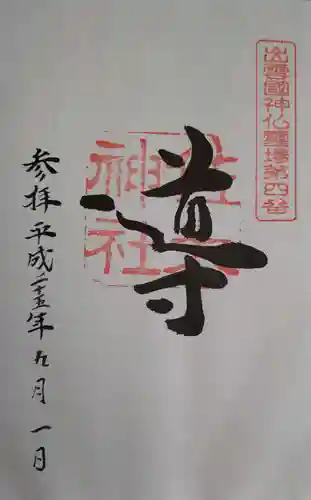 出雲國神仏霊場第四番
導
佐太神社
参拝 平成二十五年九月一日